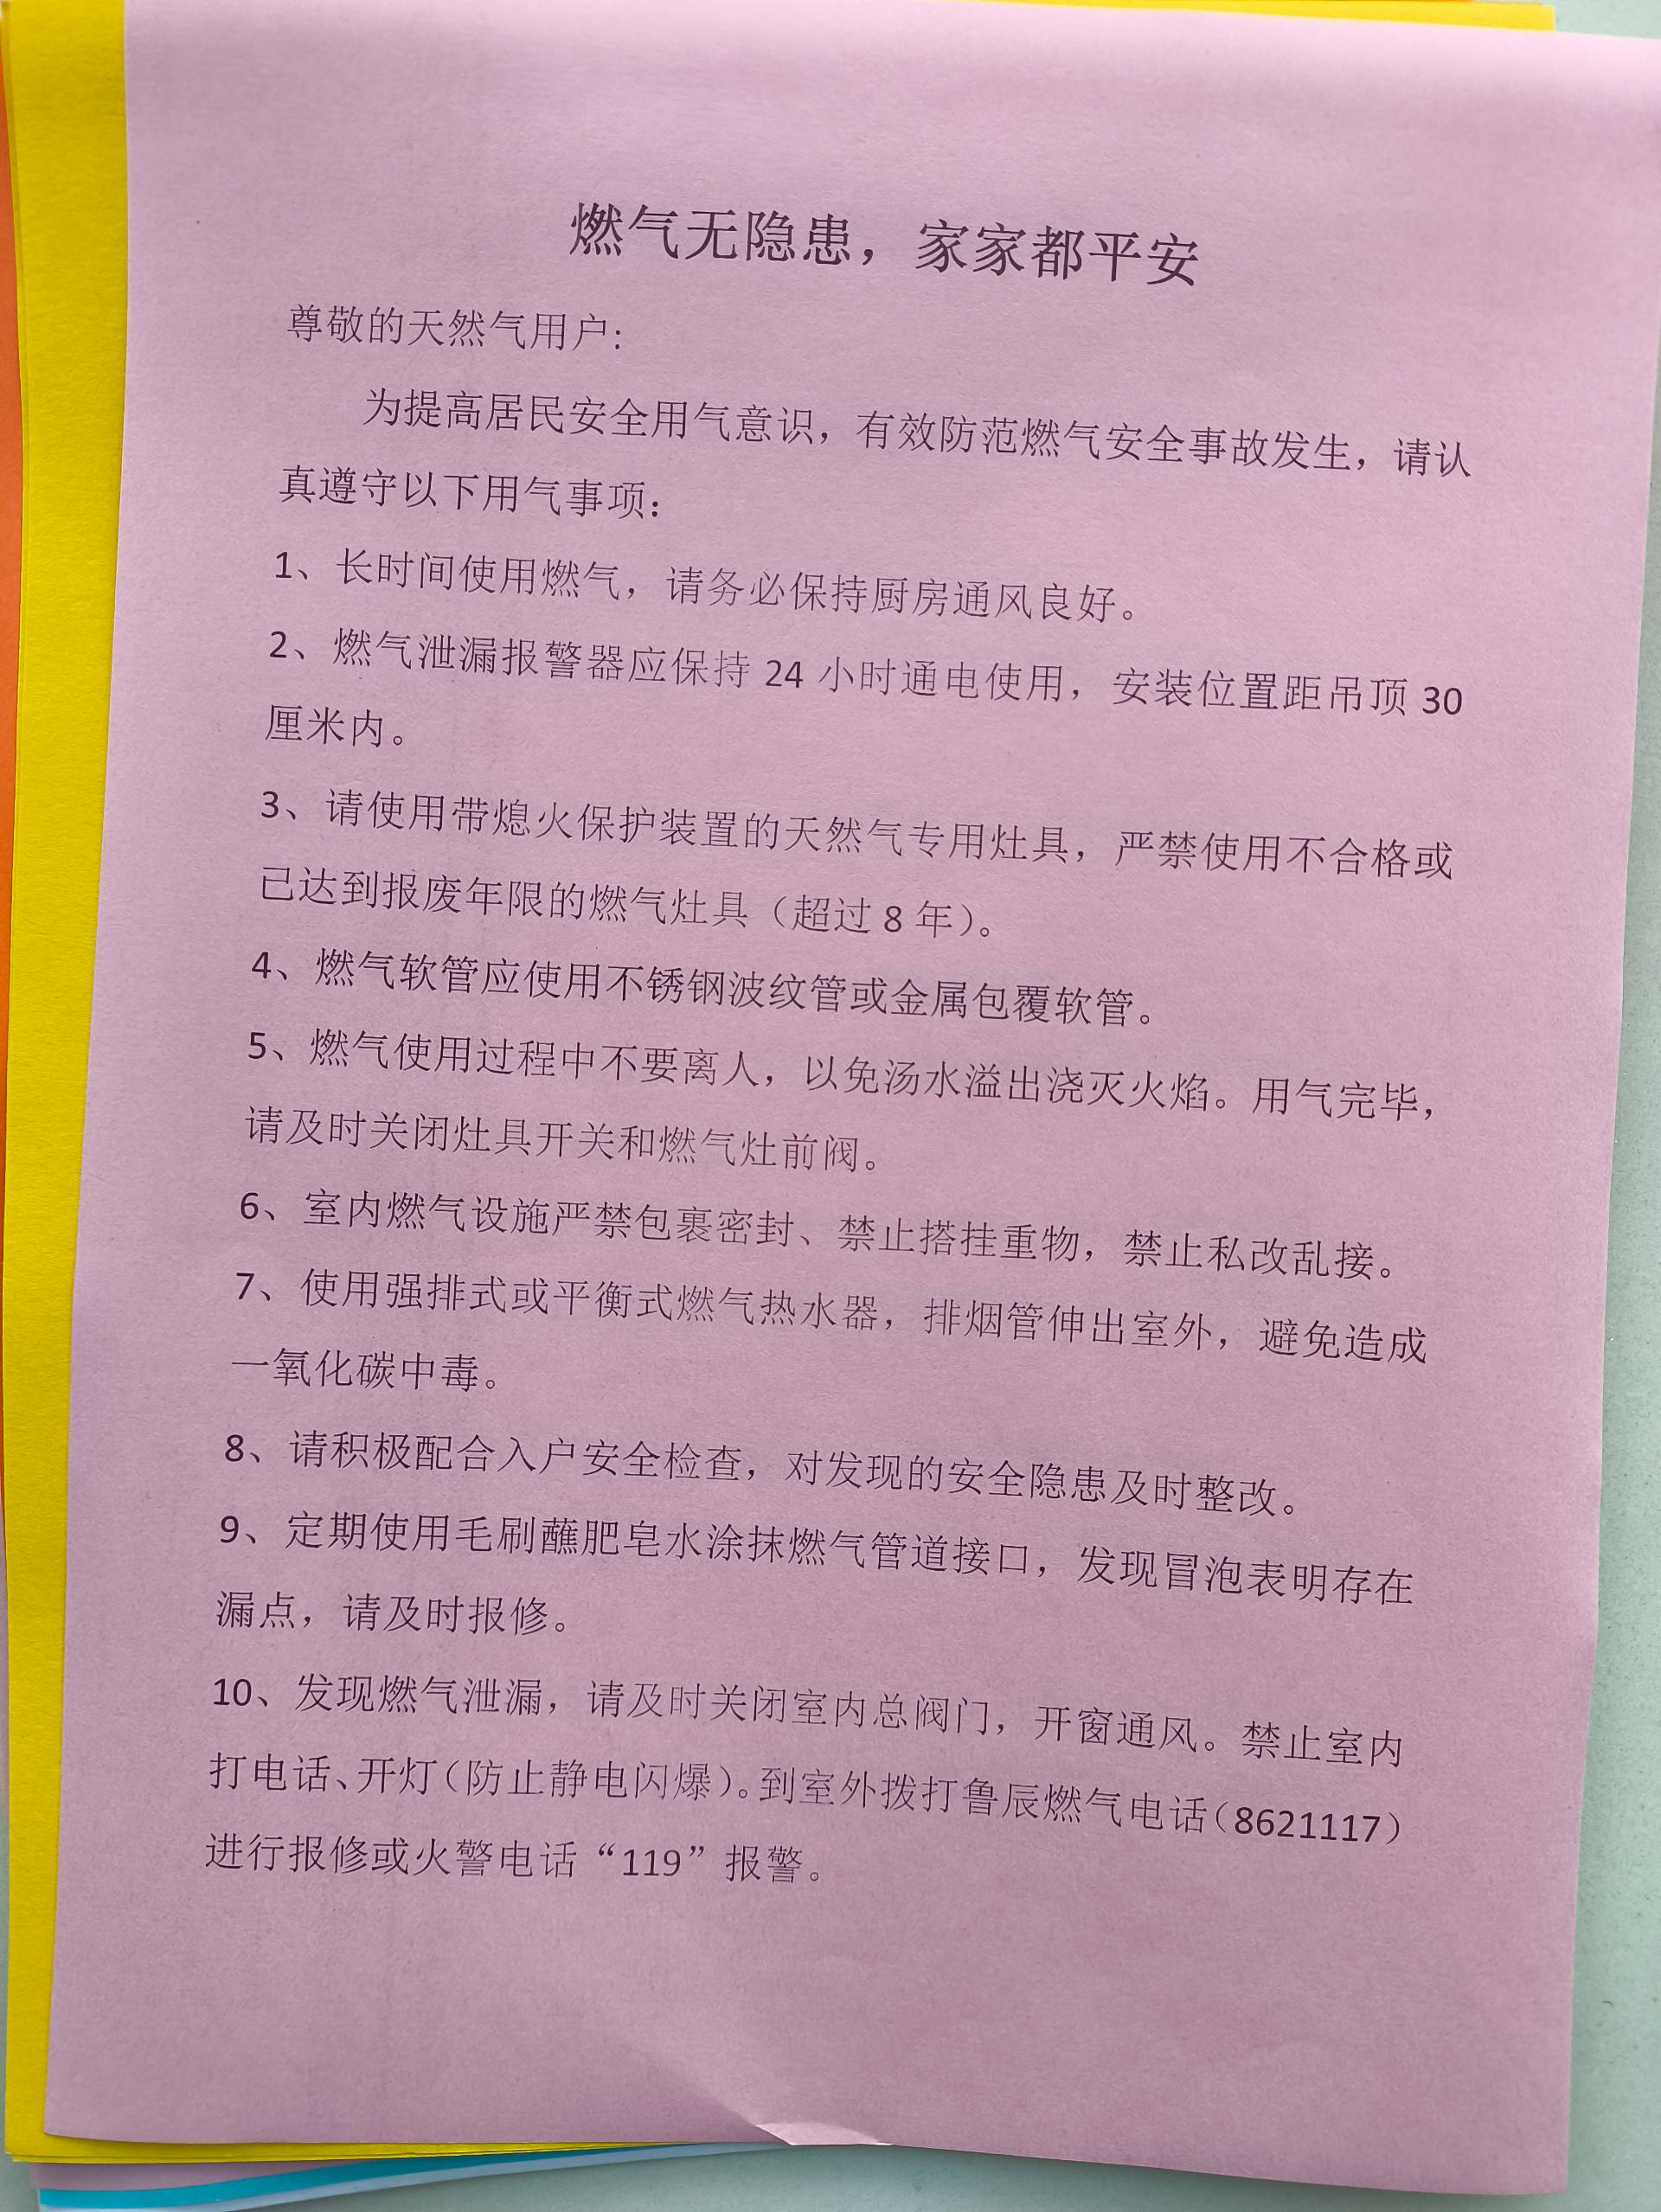 燃气无隐患，家家都平安
尊敬的天然气用户：
为提高居民安全用气意识，有效防范燃气安全事故发生，请认
真遵守以下用气事项：
1、长时间使用燃气，请务必保持厨房通风良好。
2、燃气泄漏报警器应保持 24 小时通电使用，安装位置距吊顶 30
厘米内。
3、请使用带熄火保护装置的天然气专用灶具，严禁使用不合格或
已达到报废年限的燃气灶具（超过 8 年）。
4、燃气软管应使用不锈钢波纹管或金属包覆软管。
5、燃气使用过程中不要离人，以免汤水溢出浇灭火焰。用气完毕，
请及时关闭灶具开关和燃气灶前阀。
6、室内燃气设施严禁包裹密封、禁止搭挂重物，禁止私改乱接。
7、使用强排式或平衡式燃气热水器，排烟管伸出室外，避免造成
一氧化碳中毒。
8、请积极配合入户安全检查，对发现的安全隐患及时整改。
9、定期使用毛刷蘸肥皂水涂抹燃气管道接口，发现冒泡表明存在
漏点，请及时报修。
10、发现燃气泄漏，请及时关闭室内总阀门，开窗通风。禁止室内
打电话、开灯（防止静电闪爆）。到室外拨打鲁辰燃气电话（8621117）
进行报修或火警电话“119”报警。